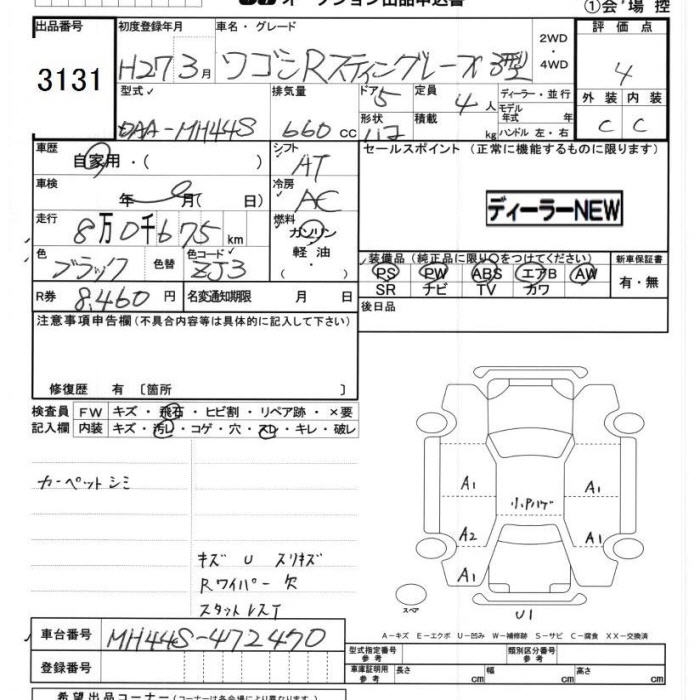 オークション出品申込書
①会場控
出品番号 初度登録年月 車名・グレード 2WD・4WD 評価点
3131 H27 3月 ワゴンRスティングレー X 3型 4
型式 排気量 ドア 5 定員 4人 ディーラー・並行 外装 内装
モデル年式 年
DAA-MH44S 660cc 形状 積載 kg ハンドル 左・右 C C
車歴 自家用・( ) シフト AT セールスポイント (正常に機能するものに限ります)
車検 年 月( 日) 冷房 AC
ディーラーNEW
走行 8万0千675km 燃料 ガソリン・軽油・
色 ブラック 色替 色コード ZJ3 装備品(純正品に限り○をつけてください) 新車保証書
PS PW ABS エアB AW 有・無
SR ナビ TV カワ
R券 8,460円 名変通知期限 月 日 後日品
注意事項申告欄(不具合内容等は具体的に記入して下さい)
修復歴 有 [箇所 ]
検査員 FW キズ・飛石・ヒビ割・リペア跡・×要
記入欄 内装 キズ・汚レ・コゲ・穴・スレ・キレ・破レ
カーペットシミ
A1 小Uハゲ A1
A2 A1
A1
キズ U スリキズ
Rワイパー欠
スタットレスT
スペア U1
A-キズ E-エクボ U-凹み W-補修跡 S-サビ C-腐食 XX-交換済
車台番号 MH44S-472470
型式指定番号 参考 類別区分番号 参考
登録番号 車庫証明用 参考 長さ cm 幅 cm 高さ cm
希望出品コーナー(コーナーは各会場により異なります)